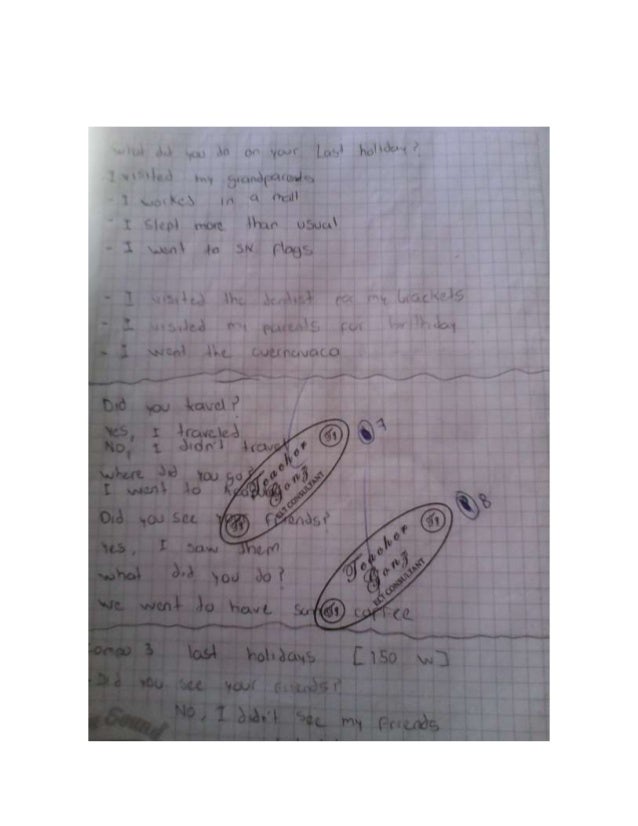 What did you do on your Last holiday?
- I visited my grandparents
- I worked in a mall
- I slept more than usual
- I went to six flags
- I visited the dentist for my brackets
- I visited my parents for birthday
- I went the cuernavaca
Did you travel?
Yes, I traveled
No, I didn't travel
Where did you go?
I went to
Did you see friends?
Yes, I saw them
What did you do?
We went to have some coffee
3 last holidays [150 w]
- Did you see your friends?
No, I didn't see my friends
7
8
Teacher Gonz
ELT CONSULTANT
Teacher Gonz
ELT CONSULTANT
Sound